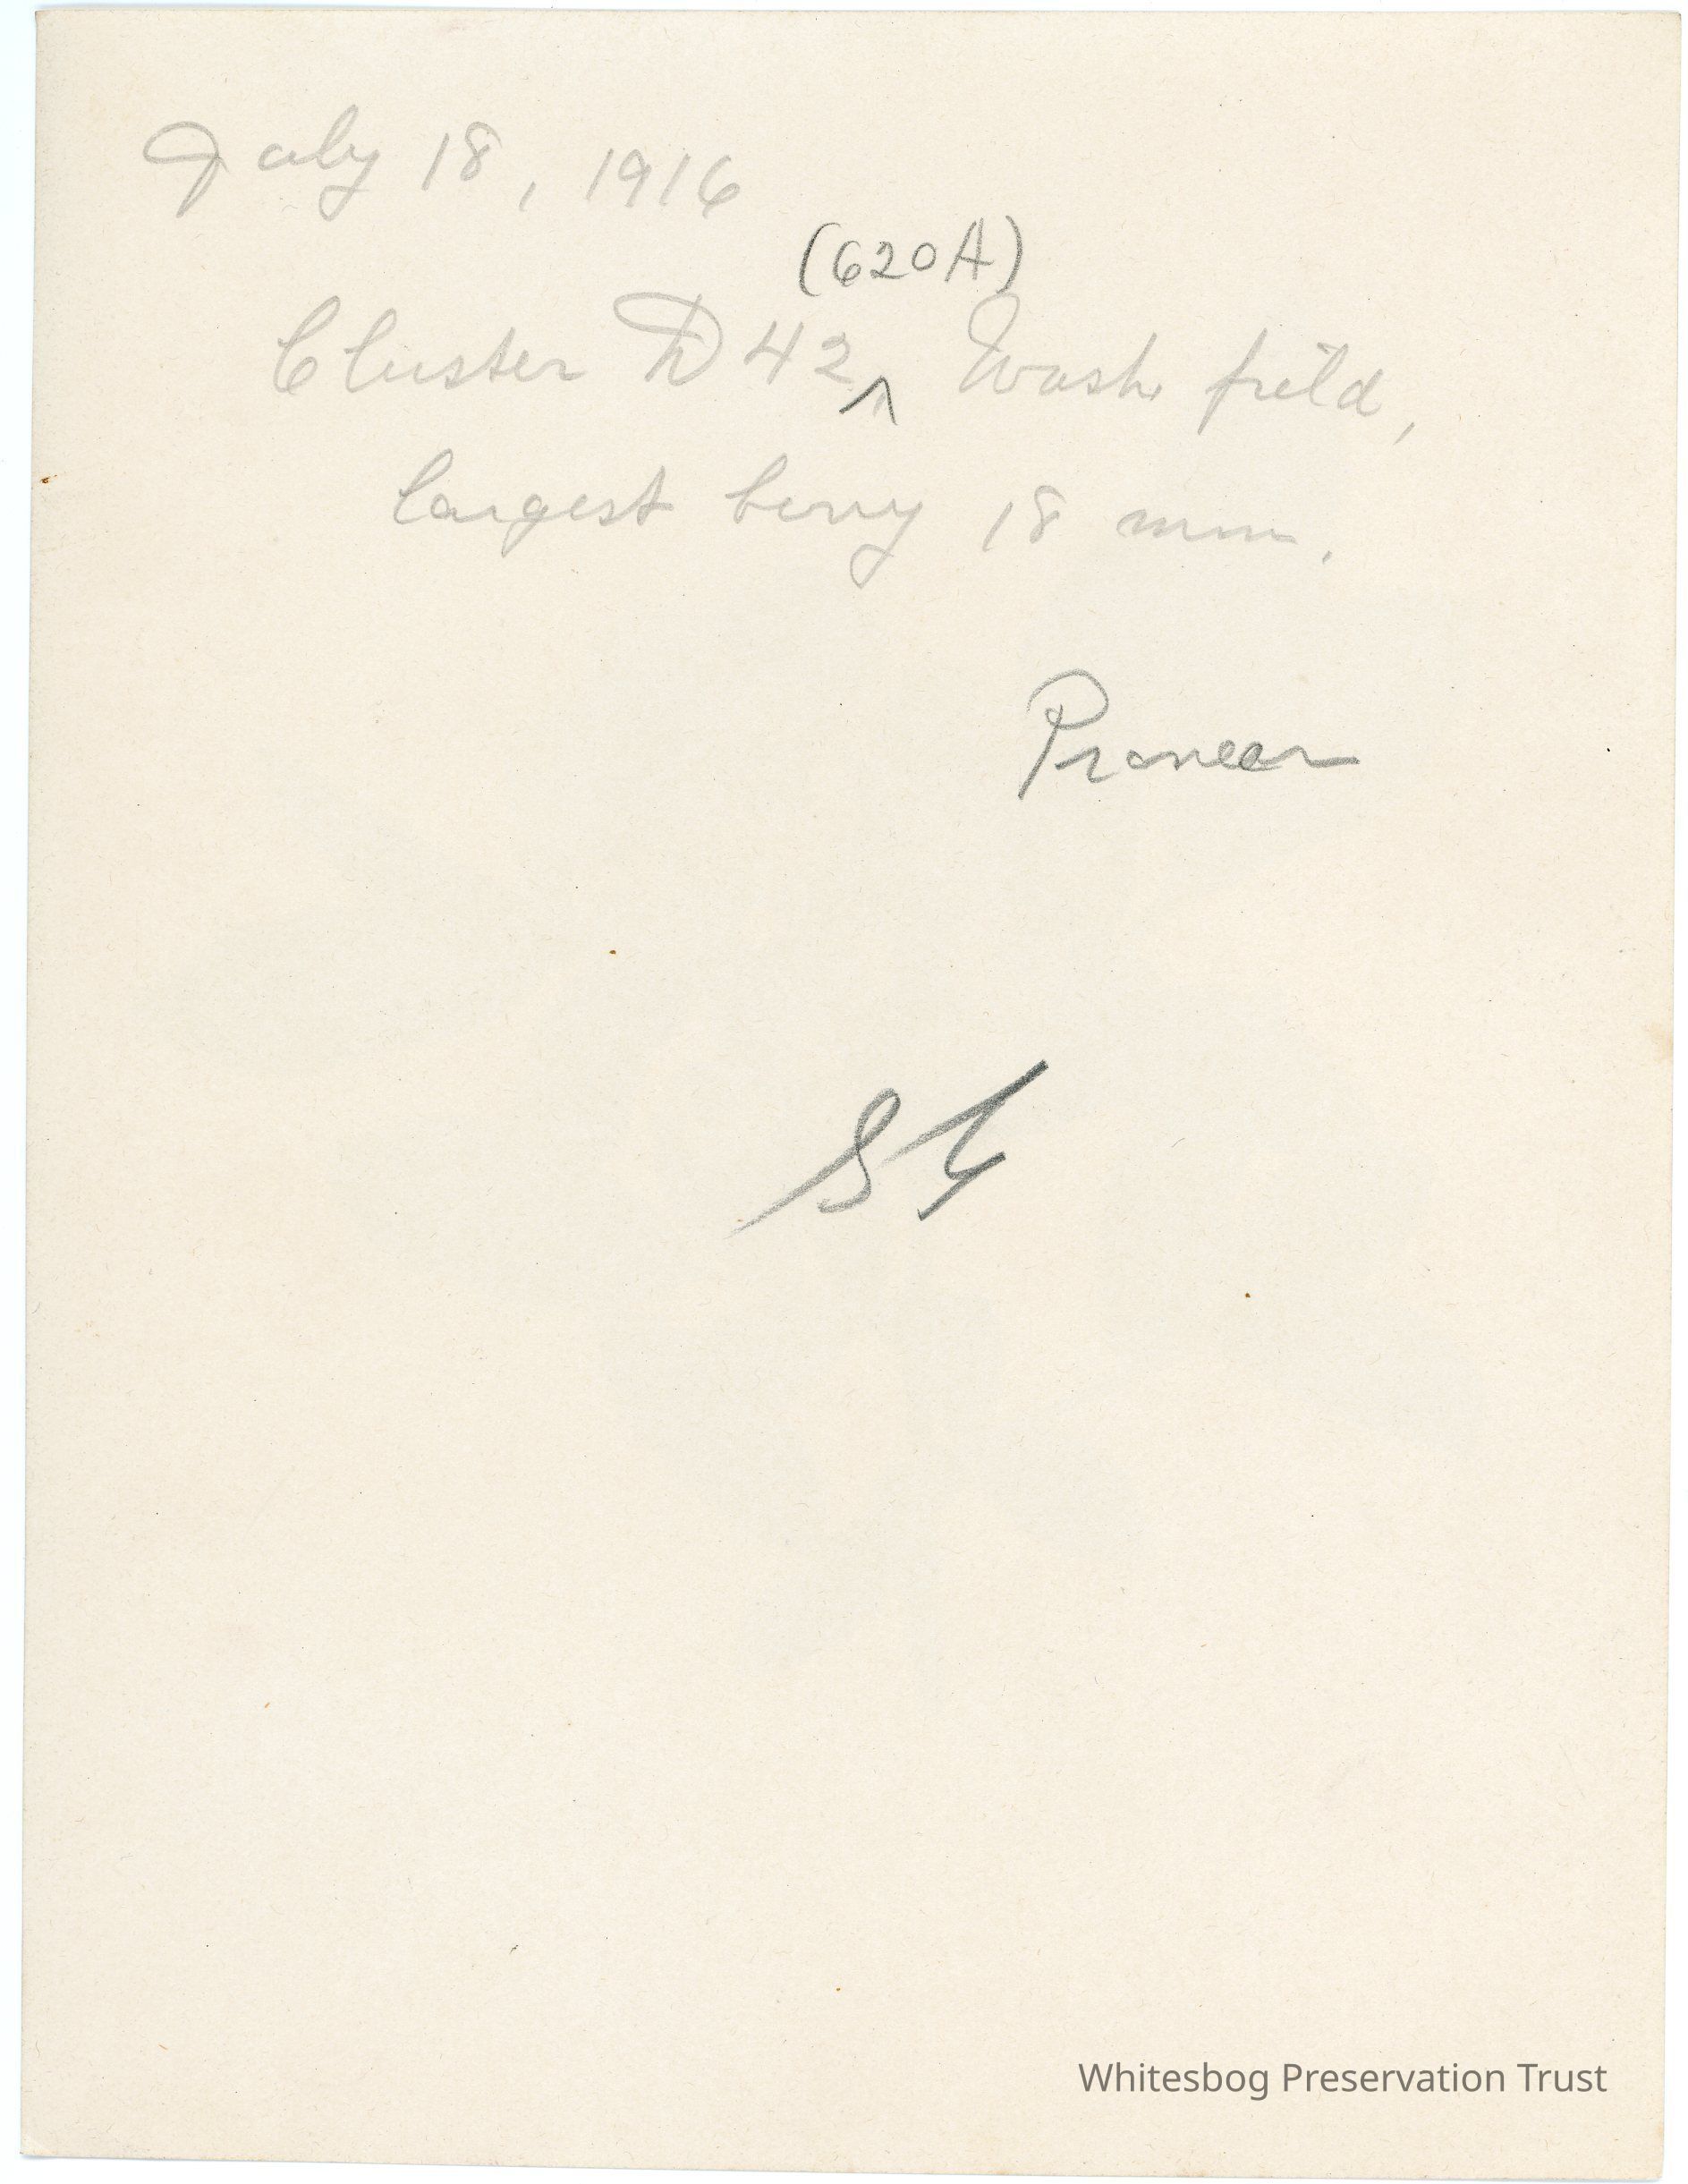 July 18, 1916
(620A)
Cluster D 42 ^ Wash field,
largest berry 18 mm.
Pioneer
Whitesbog Preservation Trust